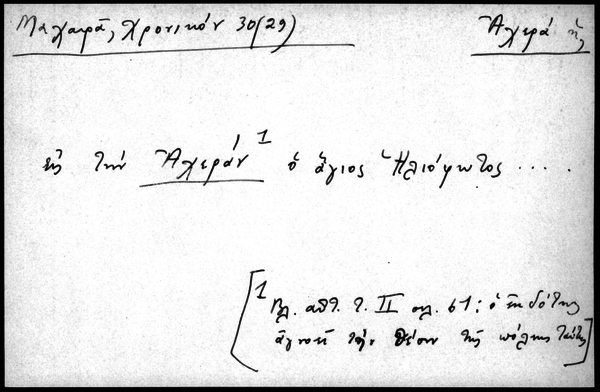 Μαχαιρᾶ, Χρονικόν 30(29) Ἀχερά ἡ
εἰς τὴν Ἀχεράν¹ ὁ ἅγιος Ἡλιόφωτος ....
[1 Βλ. αὐτ. τ. II σελ. 61: ὁ ἐκδότης
ἀγνοεῖ τὴν θέσιν τῆς πόλης ταύτης]